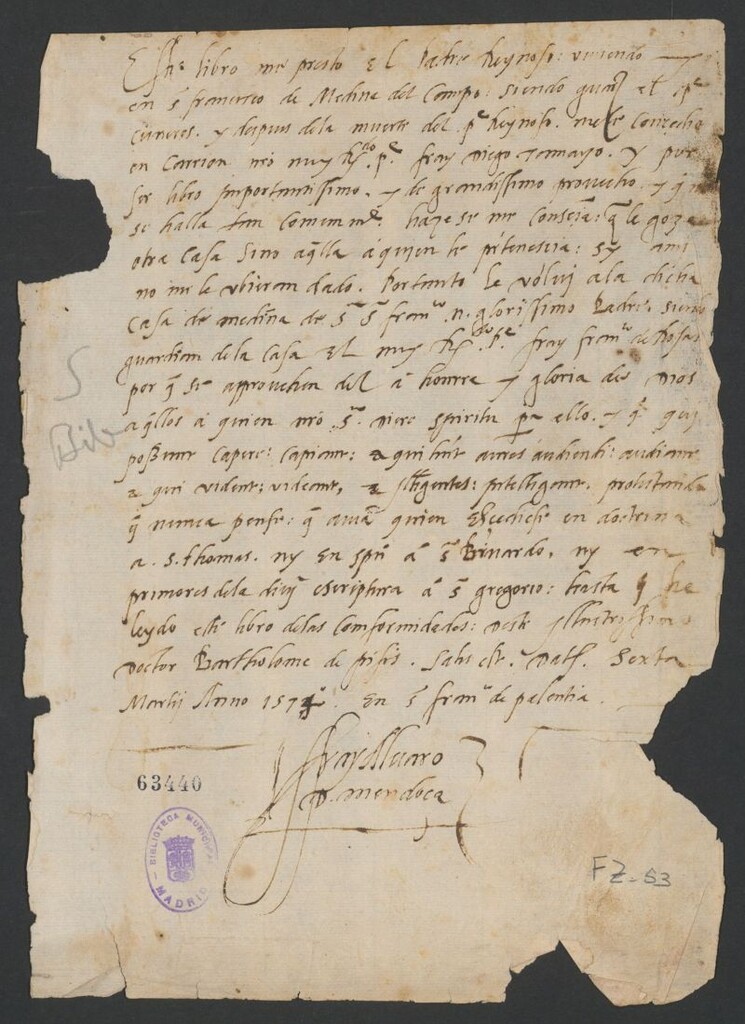 Este libro me presto El Padre Reynoso: viviendo
en s. francisco de Medina del Campo: siendo guar. el p.e
cisneros. y despues dela muerte del p.e Reynoso. me le concedio
en Carrion nro muy R.do p.e fray Diego Tamayo. y por
ser libro importantissimo. y de grandissimo provecho. y q no
se halla tan comunme. hazese me consciẽ: q le goze
otra casa sino aq̃lla a quien le pertenescia: sy ami
no me le vbieran dado. Portanto le volvi ala dicha
casa de medina de s. s. fran.co n. glorissimo Padre. siendo
guardian dela casa El muy R.do p.e fray fran.co de Rosas
por q̃ se approvechen del a honrra y gloria de Dios
aq̃llos a quien nro s.r diere spiritu p.a ello. y q̃ qui
possunt capere: capiant: & qui hñt aures audiendi: audiant
& qui vident: videant, & Itelligentes: intelligant. protestando
q̃ nunca pense: q̃ avia quien Excediese en doctrina
a. s. thomas. ny en spũ a s. Bernardo, ny en
primores dela divi escriptura a s. gregorio: hasta q he
leydo este libro delas Conformidades: deste Illustrissimo
Doctor Bartholome de pisis. satis est. Dat. Sexta
Martij Anno 1574. En s. fran.co de palentia.
fray Alvaro
D. mendoça
63440
BIBLIOTECA MUNICIPAL
MADRID
FZ-53
5
Bib